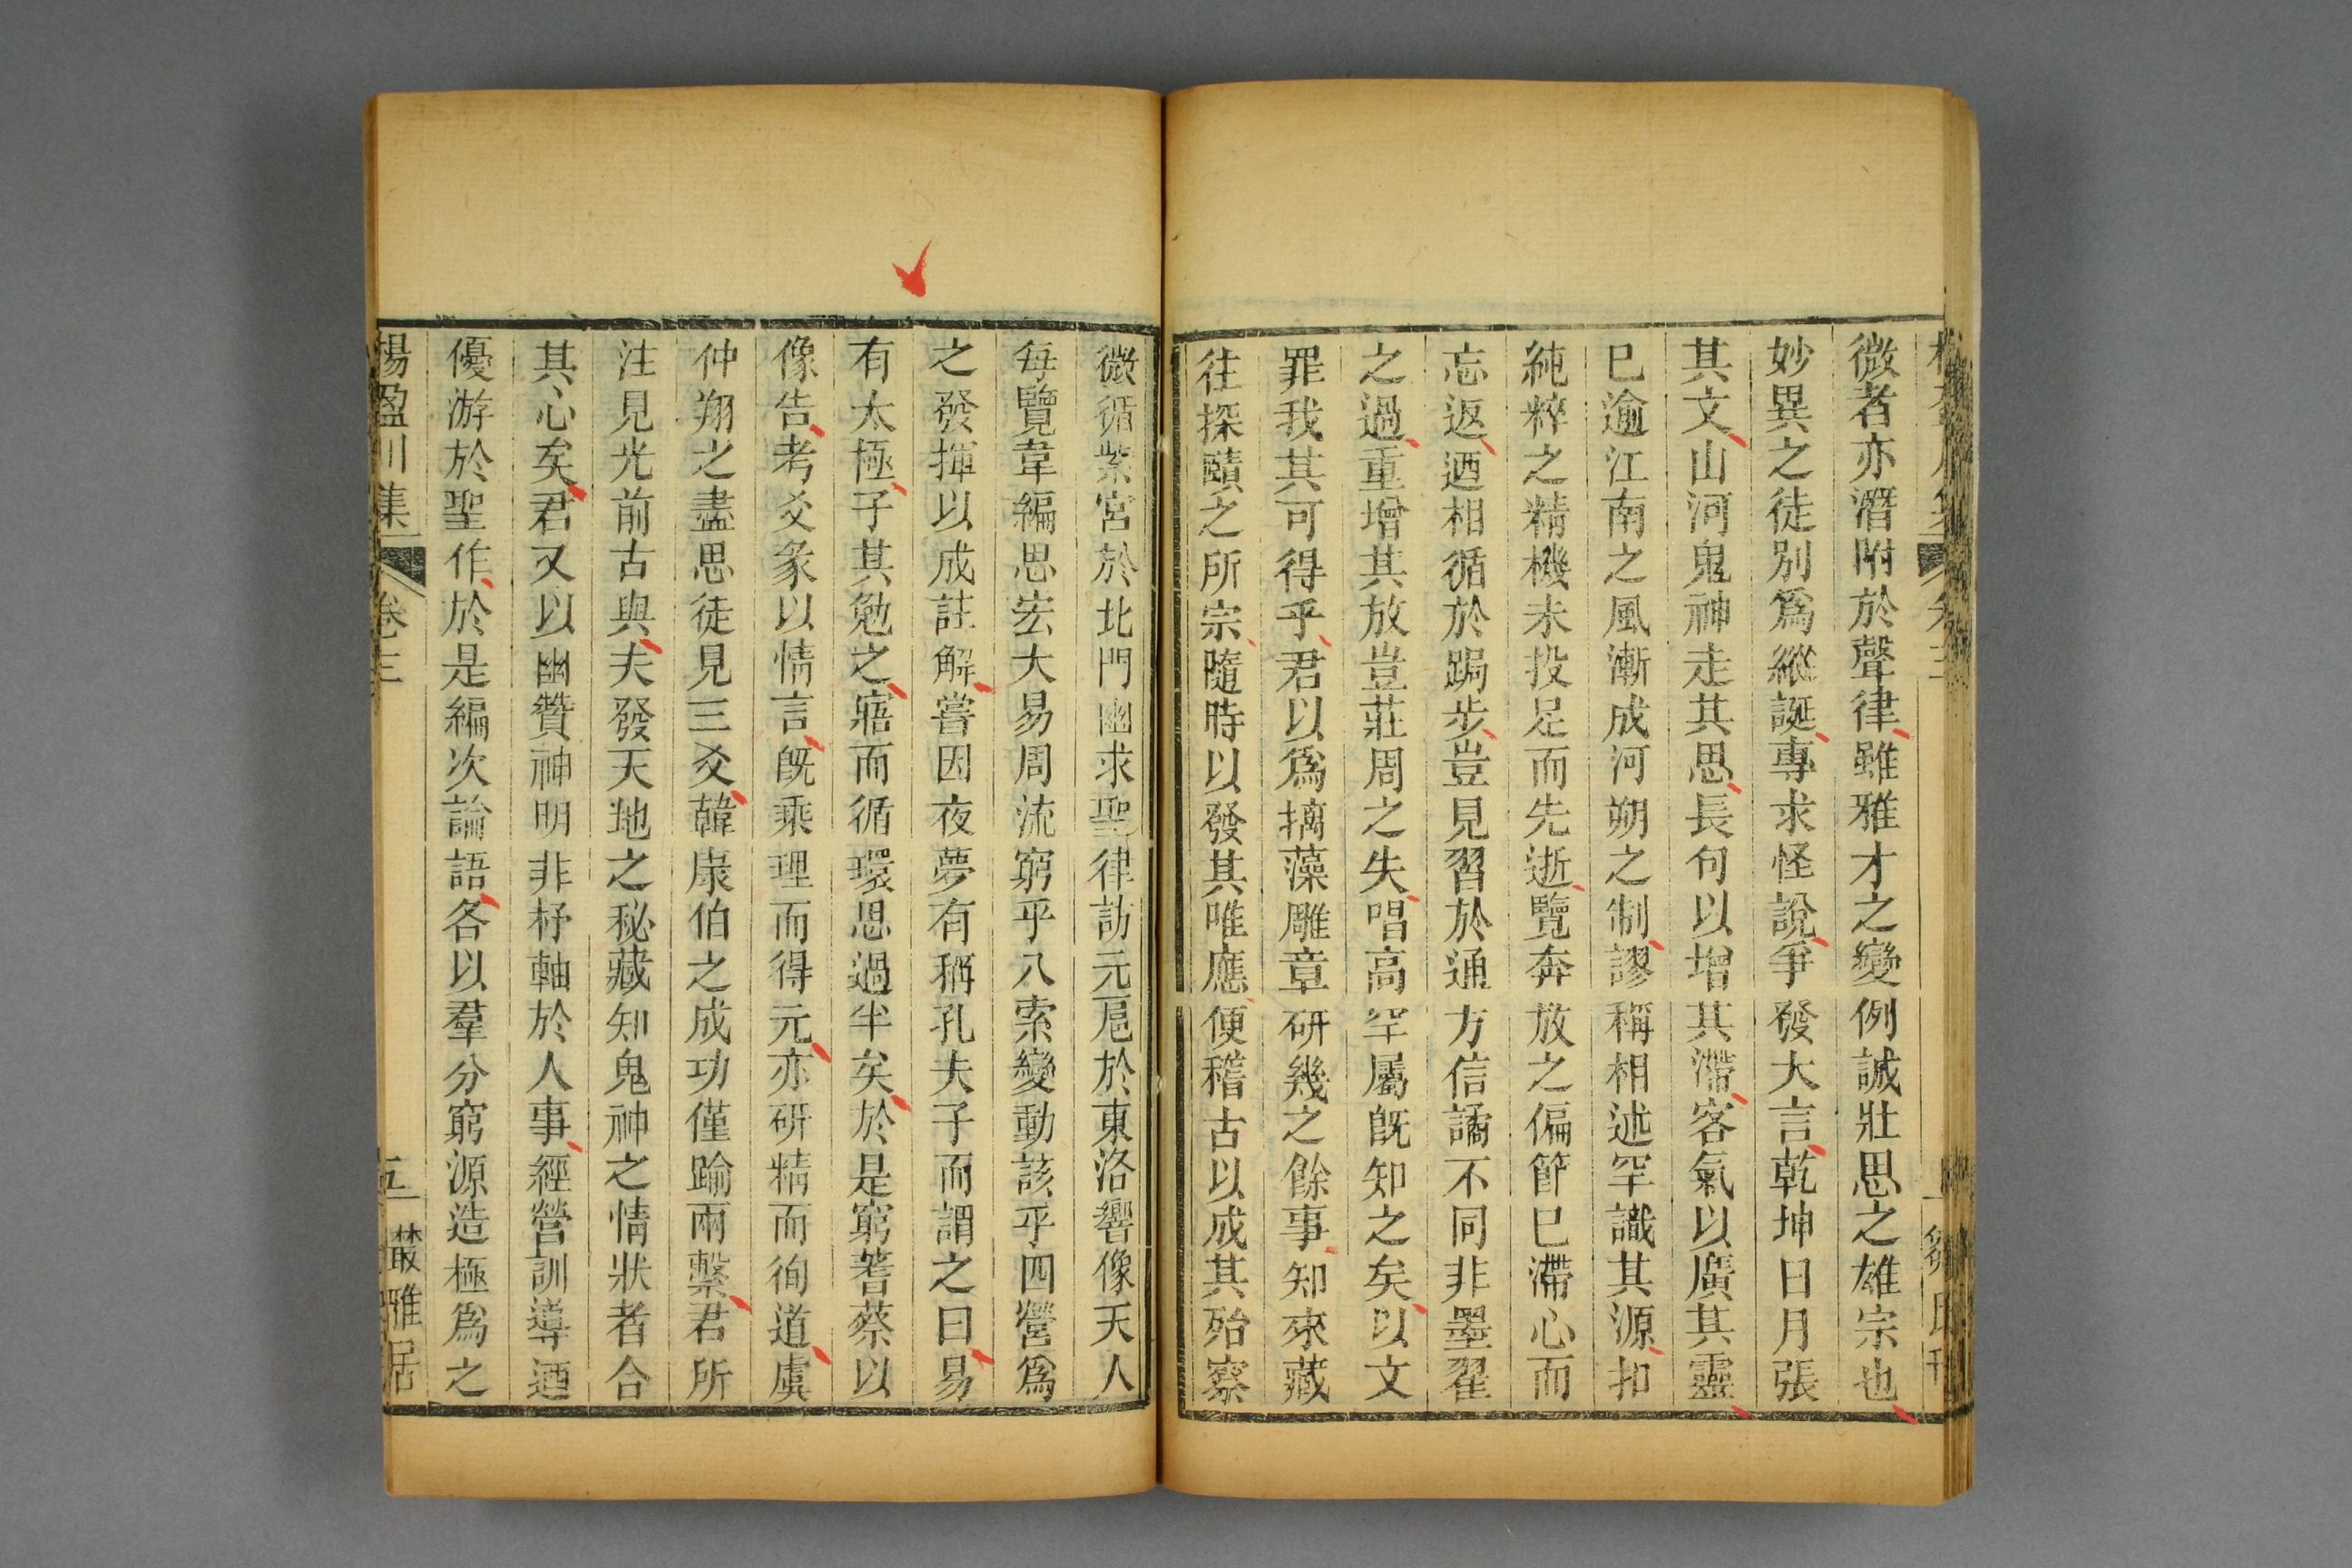 微者亦潛附於聲律雖雅才之變例誠壯思之雄宗也
妙異之徒別爲縱誕專求怪說爭發大言乾坤日月張
其文山河鬼神走其思長句以增其滯客氣以廣其靈
已逾江南之風漸成河朔之制謬稱相述罕識其源扣
純粹之精機未投足而先逝覽奔放之偏節已滯心而
忘返迺相循於跼步豈見習於通方信譎不同非墨翟
之過重增其放豈莊周之失唱高罕屬旣知之矣以文
罪我其可得乎君以爲摛藻雕章研幾之餘事知來藏
往探賾之所宗隨時以發其唯應便稽古以成其殆察
微循紫宮於北門幽求聖律訪元扈於東洛響像天人
每覽韋編思宏大易周流窮乎八索變動該乎四營爲
之發揮以成註解嘗因夜夢有稱孔夫子而謂之曰易
有太極子其勉之寤而循環思過半矣於是窮蓍蔡以
像告考爻彖以情言旣乘理而得元亦研精而徇道虞
仲翔之盡思徒見三爻韓康伯之成功僅踰兩繫君所
注見光前古與夫發天地之秘藏知鬼神之情狀者合
其心矣君又以幽贊神明非杼軸於人事經營訓導迺
優游於聖作於是編次論語各以羣分窮源造極爲之
楊盈川集 卷三 五 叢雅居